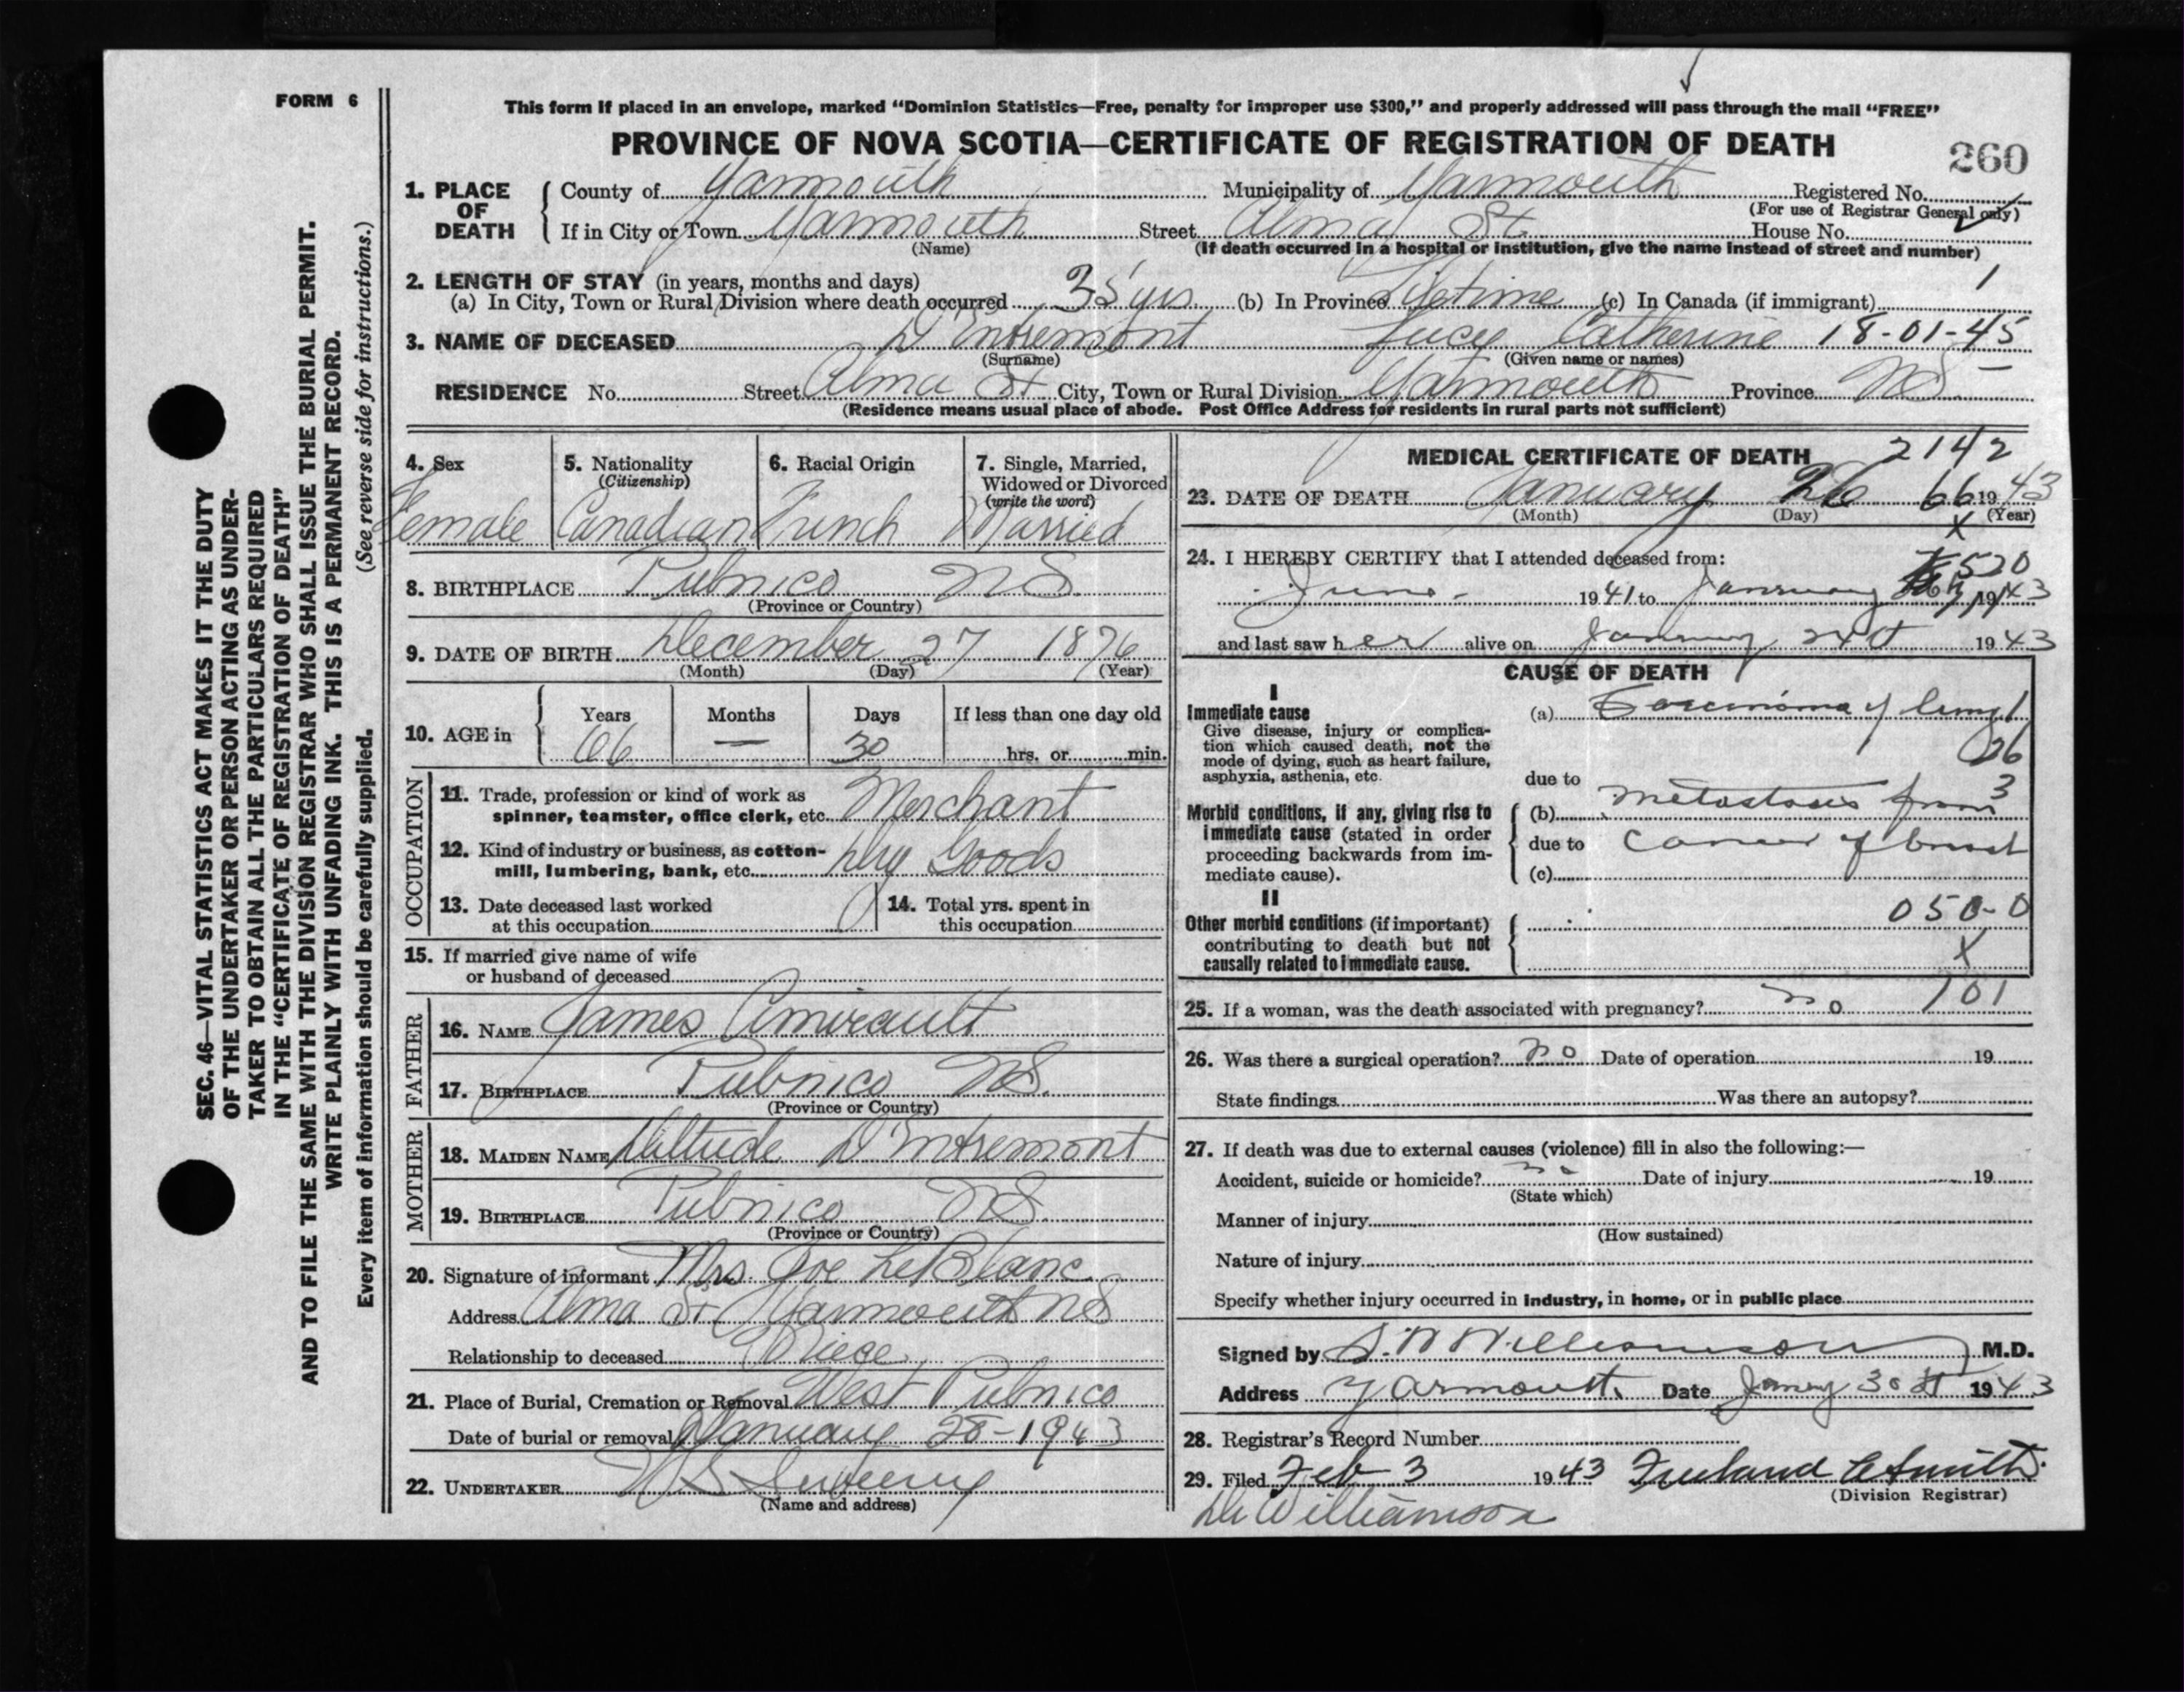 FORM 6
This form if placed in an envelope, marked “Dominion Statistics—Free, penalty for improper use $300,” and properly addressed will pass through the mail “FREE”
PROVINCE OF NOVA SCOTIA—CERTIFICATE OF REGISTRATION OF DEATH
260
1. PLACE OF DEATH
County of Yarmouth Municipality of Yarmouth Registered No.
(For use of Registrar General only)
If in City or Town Yarmouth Street Alma St. House No.
(Name) (If death occurred in a hospital or institution, give the name instead of street and number)
2. LENGTH OF STAY (in years, months and days) 1
(a) In City, Town or Rural Division where death occurred 35 yrs (b) In Province Lifetime (c) In Canada (if immigrant)
3. NAME OF DECEASED D'Entremont Lucy Catherine 18-01-45
(Surname) (Given name or names)
RESIDENCE No. Street Alma St City, Town or Rural Division Yarmouth Province NS
(Residence means usual place of abode. Post Office Address for residents in rural parts not sufficient)
4. Sex
Female
5. Nationality
(Citizenship)
Canadian
6. Racial Origin
French
7. Single, Married,
Widowed or Divorced
(write the word)
Married
8. BIRTHPLACE Pubnico NS
(Province or Country)
9. DATE OF BIRTH December 27 1876
(Month) (Day) (Year)
10. AGE in
Years Months Days If less than one day old
66 — 30 hrs. or min.
OCCUPATION
11. Trade, profession or kind of work as
spinner, teamster, office clerk, etc. Merchant
12. Kind of industry or business, as cotton-
mill, lumbering, bank, etc. Dry Goods
13. Date deceased last worked
at this occupation
14. Total yrs. spent in
this occupation
15. If married give name of wife
or husband of deceased
FATHER
16. NAME James Amirault
17. BIRTHPLACE Pubnico NS.
(Province or Country)
MOTHER
18. MAIDEN NAME D'Entremont
19. BIRTHPLACE Pubnico NS.
(Province or Country)
20. Signature of informant Mrs. Joe LeBlanc
Address Alma St Yarmouth NS
Relationship to deceased Niece
21. Place of Burial, Cremation or Removal West Pubnico
Date of burial or removal January 28-1943
22. UNDERTAKER Sweeny
(Name and address)
MEDICAL CERTIFICATE OF DEATH 2142
23. DATE OF DEATH January 26 66 1943
(Month) (Day) (Year)
X
24. I HEREBY CERTIFY that I attended deceased from:
520
June 1941 to January 1943
and last saw her alive on January 24 1943
CAUSE OF DEATH
I
Immediate cause
Give disease, injury or complica-
tion which caused death, not the
mode of dying, such as heart failure,
asphyxia, asthenia, etc.
(a) Carcinoma of lung 1
26
due to
3
Morbid conditions, if any, giving rise to
immediate cause (stated in order
proceeding backwards from im-
mediate cause).
(b) metastases from
due to cancer of breast
(c)
II
Other morbid conditions (if important)
contributing to death but not
causally related to immediate cause.
050-0
X
25. If a woman, was the death associated with pregnancy? no 101
26. Was there a surgical operation? no Date of operation 19
State findings Was there an autopsy?
27. If death was due to external causes (violence) fill in also the following:—
Accident, suicide or homicide? no Date of injury 19
(State which)
Manner of injury
(How sustained)
Nature of injury
Specify whether injury occurred in industry, in home, or in public place
Signed by Williamson M.D.
Address Yarmouth. Date 30 1943
28. Registrar's Record Number
29. Filed Feb 3 1943 Smith
(Division Registrar)
Dr Williamson
SEC. 46—VITAL STATISTICS ACT MAKES IT THE DUTY
OF THE UNDERTAKER OR PERSON ACTING AS UNDER-
TAKER TO OBTAIN ALL THE PARTICULARS REQUIRED
IN THE “CERTIFICATE OF REGISTRATION OF DEATH”
AND TO FILE THE SAME WITH THE DIVISION REGISTRAR WHO SHALL ISSUE THE BURIAL PERMIT.
WRITE PLAINLY WITH UNFADING INK. THIS IS A PERMANENT RECORD.
Every item of information should be carefully supplied. (See reverse side for instructions.)